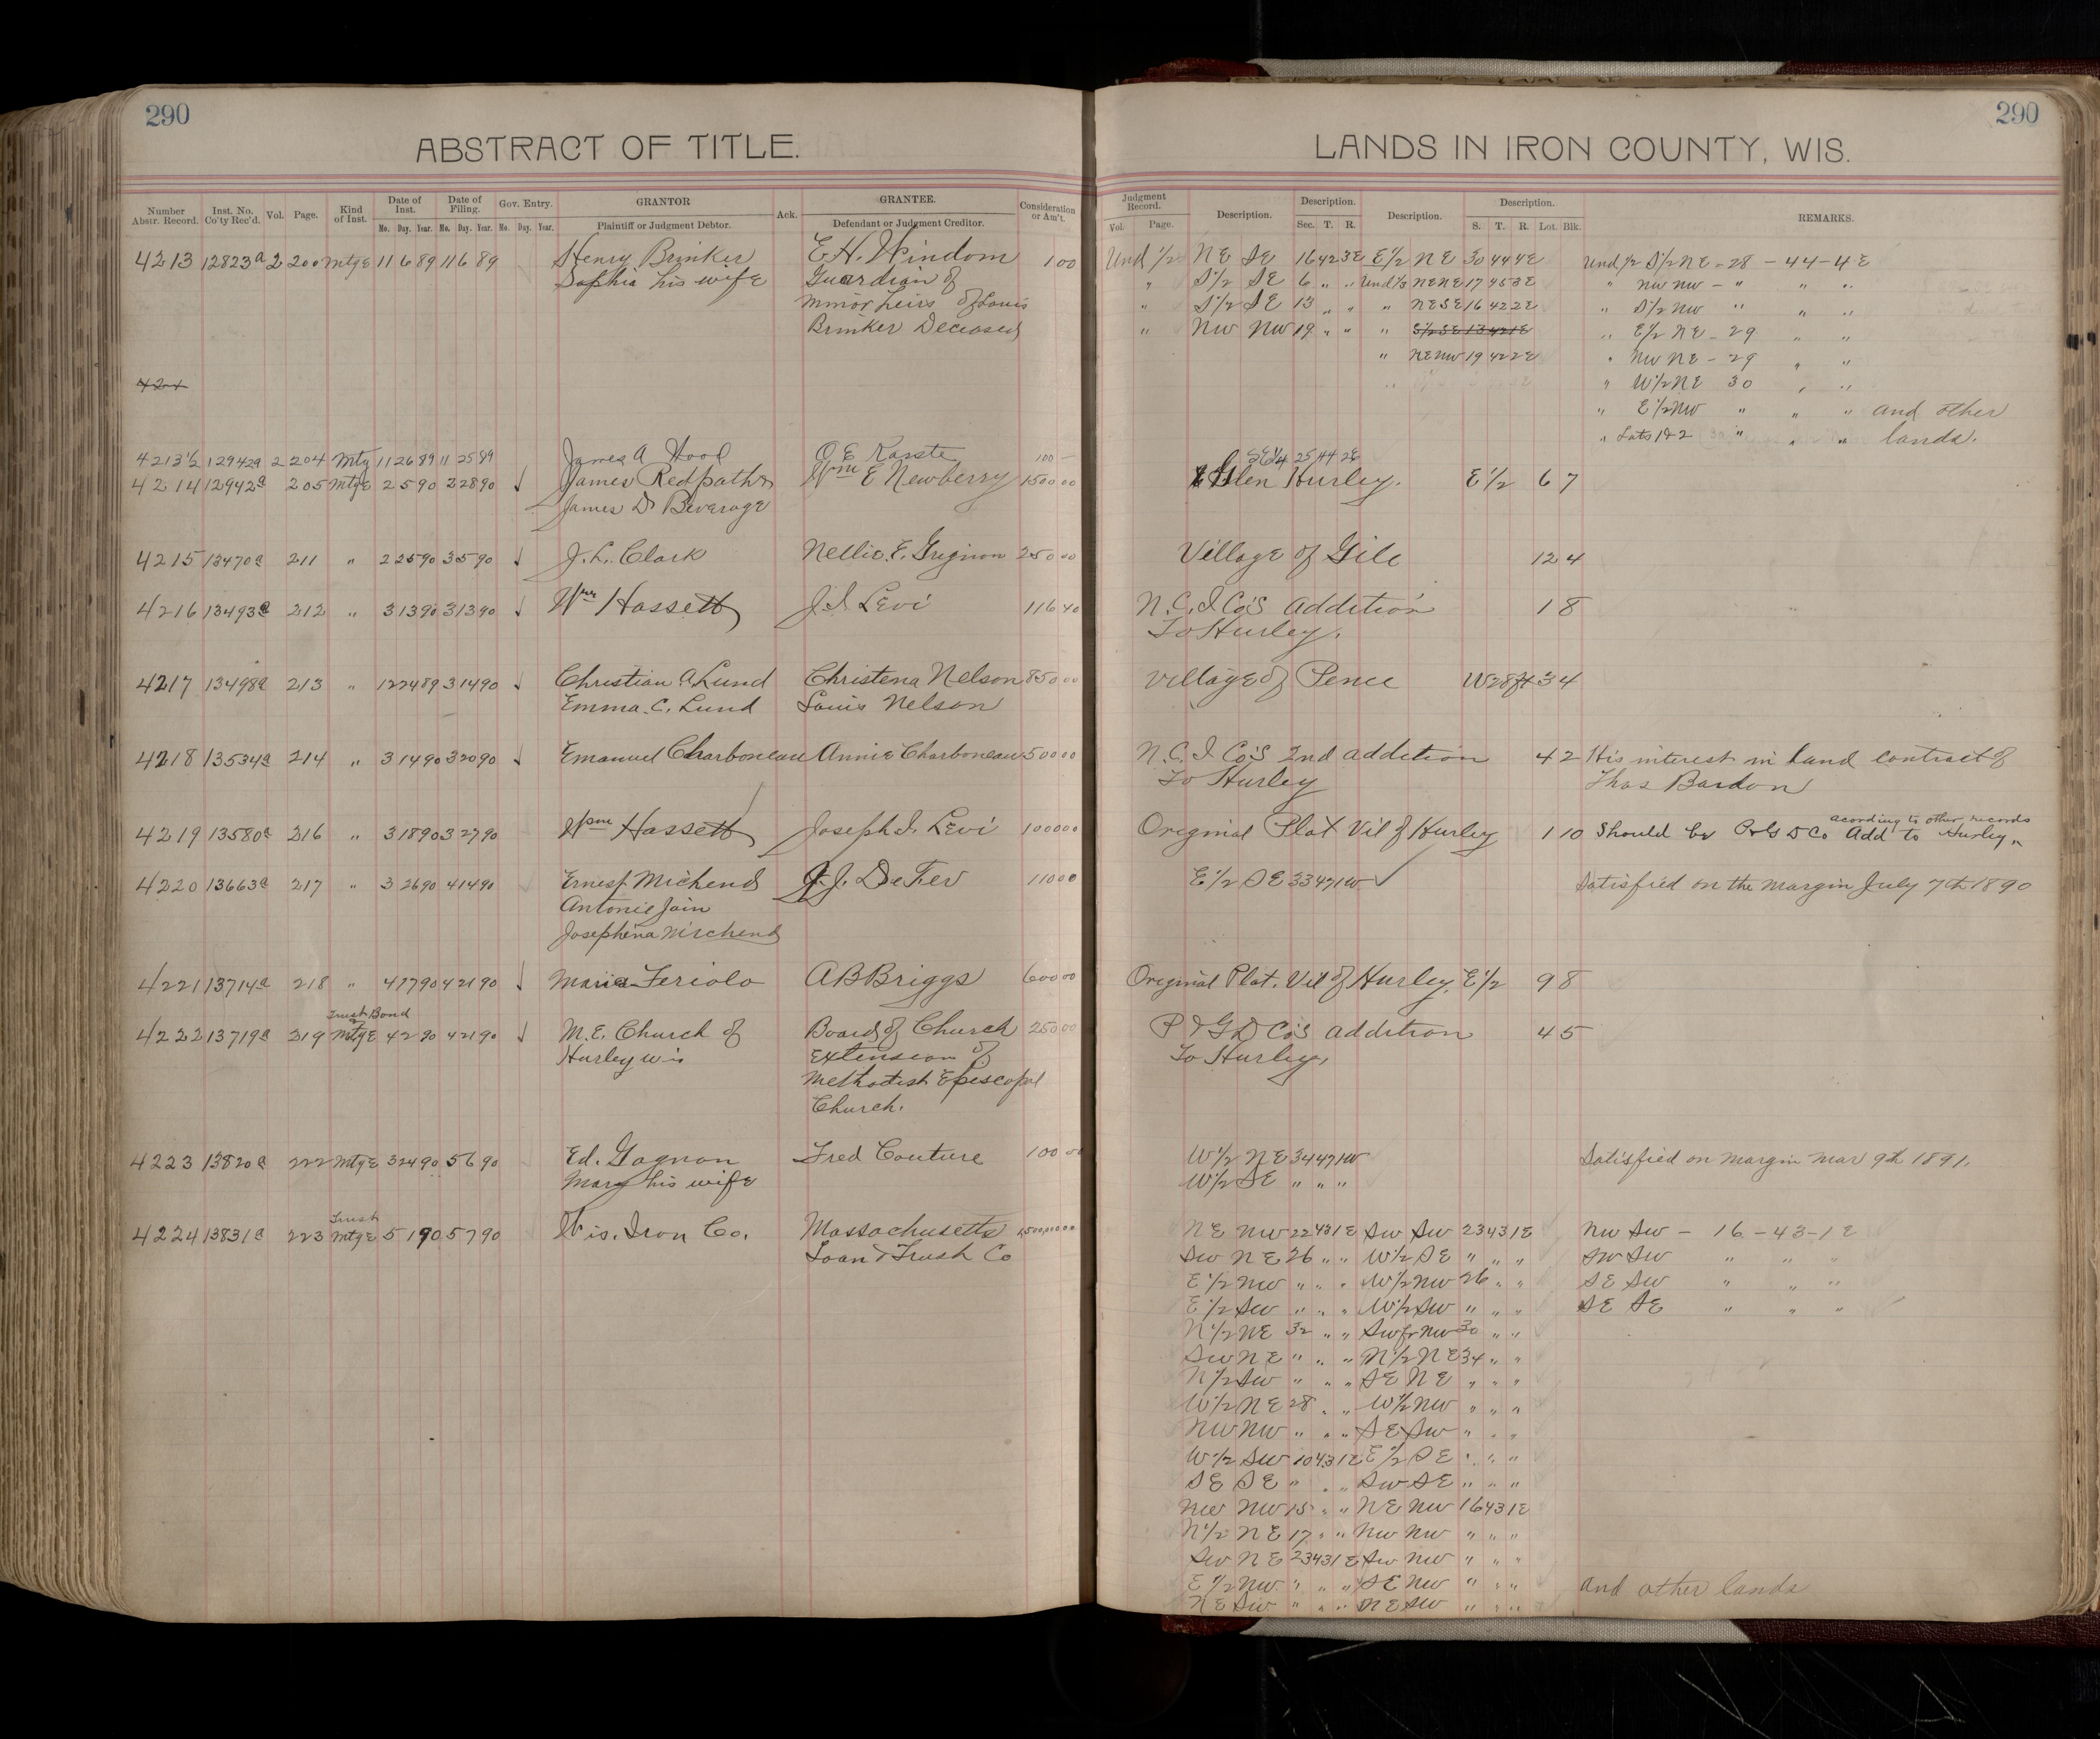 290
ABSTRACT OF TITLE.
Number Abstr. Record. Inst. No. Co'ty Rec'd. Vol. Page. Kind of Inst. Date of Inst. Mo. Day. Year. Date of Filing. Mo. Day. Year. Gov. Entry. Mo. Day. Year. GRANTOR Plaintiff or Judgment Debtor. Ack. GRANTEE. Defendant or Judgment Creditor. Consideration or Am't.
4213 12823a 2 200 mtge 11 6 89 11 6 89 Henry Brinker E H. Windom 100
Sophia his wife Guardian of
minor heirs of Louis
Brinker Deceased
424
4213½ 12942a 2 204 Mtg 11 26 89 11 25 89 James A Hood O E Karste 100 —
4214 12942a 205 mtge 2 5 90 2 28 90 James Redpath Wm E Newberry 1500 00
James D Beverage
4215 13470a 211 " 2 25 90 3 5 90 J. L. Clark Nellie. E. Grignon 250 00
4216 13493a 212 " 3 13 90 3 13 90 Wm Hassett J. I Levi 116 40
4217 13498a 213 " 12 24 89 3 14 90 Christian A. Lund Christena Nelson 850 00
Emma. C. Lund Louis Nelson
4218 13534a 214 " 3 14 90 3 20 90 Emanuel Charboneau Annie Charboneau 500 00
4219 13580a 216 " 3 18 90 3 27 90 Wm Hassett Joseph I. Levi 1000 00
4220 13663a 217 " 3 26 90 4 14 90 Ernest Michend J. J. DeFer 110 00
Antonie Jain
Josephina Michend
4221 13714a 218 " 4 7 90 4 21 90 Maria Feriolo A B Briggs 600 00
Trust Bond
4222 13719a 219 Mtge 4 2 90 4 21 90 M. E. Church of Board of Church 250 00
Hurley Wis Extension of
Methodist Episcopal
Church.
4223 13820a 222 mtge 3 24 90 5 6 90 Ed. Gagnon Fred Couture 100 00
Mary his wife
Trust
4224 13831a 223 Mtge 5 1 90 5 7 90 Wis. Iron Co. Massachusetts
Loan & Trust Co
290
LANDS IN IRON COUNTY, WIS.
Judgment Record. Vol. Page. Description. Description. Sec. T. R. Description. Description. S. T. R. Lot. Blk. REMARKS.
Und 1/2 NE SE 16 42 3E E1/2 NE 30 44 4E Und 1/2 S1/2 NE - 28 - 44 - 4 E
" S1/2 SE 6 " " Und 1/3 NENE 17 45 3E " NW NW - " " "
" S1/2 SE 13 " " " NESE 16 42 2E " S1/2 NW " " "
" NW NW 19 " " " S1/2 SE 13 42 1E " E1/2 NE - 29 " "
" NENW 19 42 2E " NW NE - 29 " "
" W1/2 NE 30 " "
" E1/2 NW " " " and other
" Lots 1&2 " " " lands.
SE1/4 25 44 2E
Glen Hurley. E1/2 6 7
Village of Gile 12 4
N. C. I Co's Addition 1 8
To Hurley.
Village of Pence W 28 ft 3 4
N. C. I Co's 2nd addition 4 2 His interest in land contract of
To Hurley Thos Bardon
acording to other records
Original Plat Vil of Hurley 1 10 Should be P & G D Co Add to Hurley "
E1/2 SE 33 47 1W Satisfied on the margin July 7th 1890
Original Plat. Vil of Hurley. E1/2 9 8
P & G D Co's addition 4 5
To Hurley,
W1/2 NE 34 47 1W Satisfied on margin Mar 9th 1891.
W1/2 SE " " "
NE NW 22 43 1E SW SW 23 43 1E NW SW - 16 - 43 - 1 E
SW NE 26 " " W1/2 SE " " " SW SW " " "
E1/2 NW " " " W1/2 NW 26 " " SE SW " " "
E1/2 SW " " " W1/2 SW " " " SE SE " " "
N1/2 NE 32 " " SW fr NW 30 " "
SW NE " " " N1/2 NE 34 " "
N1/2 SW " " " SE NE " " "
W1/2 NE 28 " " W1/2 NW " " "
NW NW " " " SE SW " " "
W1/2 SW 10 43 1E E1/2 SE " " "
SE SE " " " SW SE " " "
NW NW 15 " " NE NW 16 43 1E
N1/2 NE 17 " " NW NW " " "
SW NE 23 43 1E SW NW " " "
E1/2 NW " " " SE NW " " " and other lands
NE SW " " " NE SW " " "